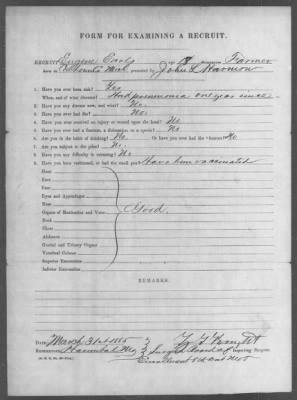 FORM FOR EXAMINING A RECRUIT.
RECRUIT Eugene Early 18 Farmer
Born in Mich. presented by John L.
1. Have you ever been sick? Yes
When, and of what diseases? Had pneumonia one year since
2. Have you any disease now, and what? No.
3. Have you ever had fits? No.
4. Have you ever received an injury or wound upon the head? No
5. Have you ever had a fracture, a dislocation, or a sprain? No
6. Are you in the habit of drinking? No Or have you ever had the "horrors?" No
7. Are you subject to the piles? No.
8. Have you any difficulty in urinating? No
9. Have you been vaccinated, or had the small pox? Have been vaccinated
Head
Ears
Eyes and Appendages
Nose
Mouth
Organs of Mastication and Voice Good.
Neck
Chest
Abdomen
Genital and Urinary Organs
Vertebral Column
Superior Extremities
Inferior Extremities
REMARKS.
DATE March 31st 1865
RENDEZVOUS Hannibal Mo Surg of Board of Inspecting Surgeon
Enrollment Mo